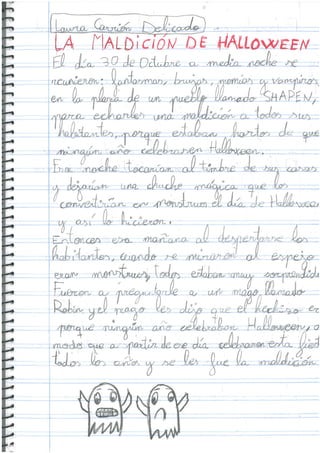 Laura Carrión Delicado
LA MALDICIÓN DE HALLOWEEN
El día 30 de Octubre a media noche se
reunieron: fantasmas, brujas, momias y vampiros,
en la plaza de un pueblo llamado SHAPEN,
para echarles una maldición a todos sus
habitantes, porque estaban hartos de que
ningún año celebrasen Halloween.
Esa noche tocarían al timbre de sus casas
y dejarían una chuche mágica que los
convertirían en monstruos el día de Halloween
y así lo hicieron.
Entonces esa mañana al despertarse los
habitantes, cuando se miraron al espejo
eran monstruos, todos estaban muy sorprendido
Fueron a preguntarle a un mago llamado
Robin y el mago les dijo que el hechizo er
porque ningún año celebraban Halloween, a
modo que a partir de ese día celebraron esta fiest
todos los años y se les fue la maldición